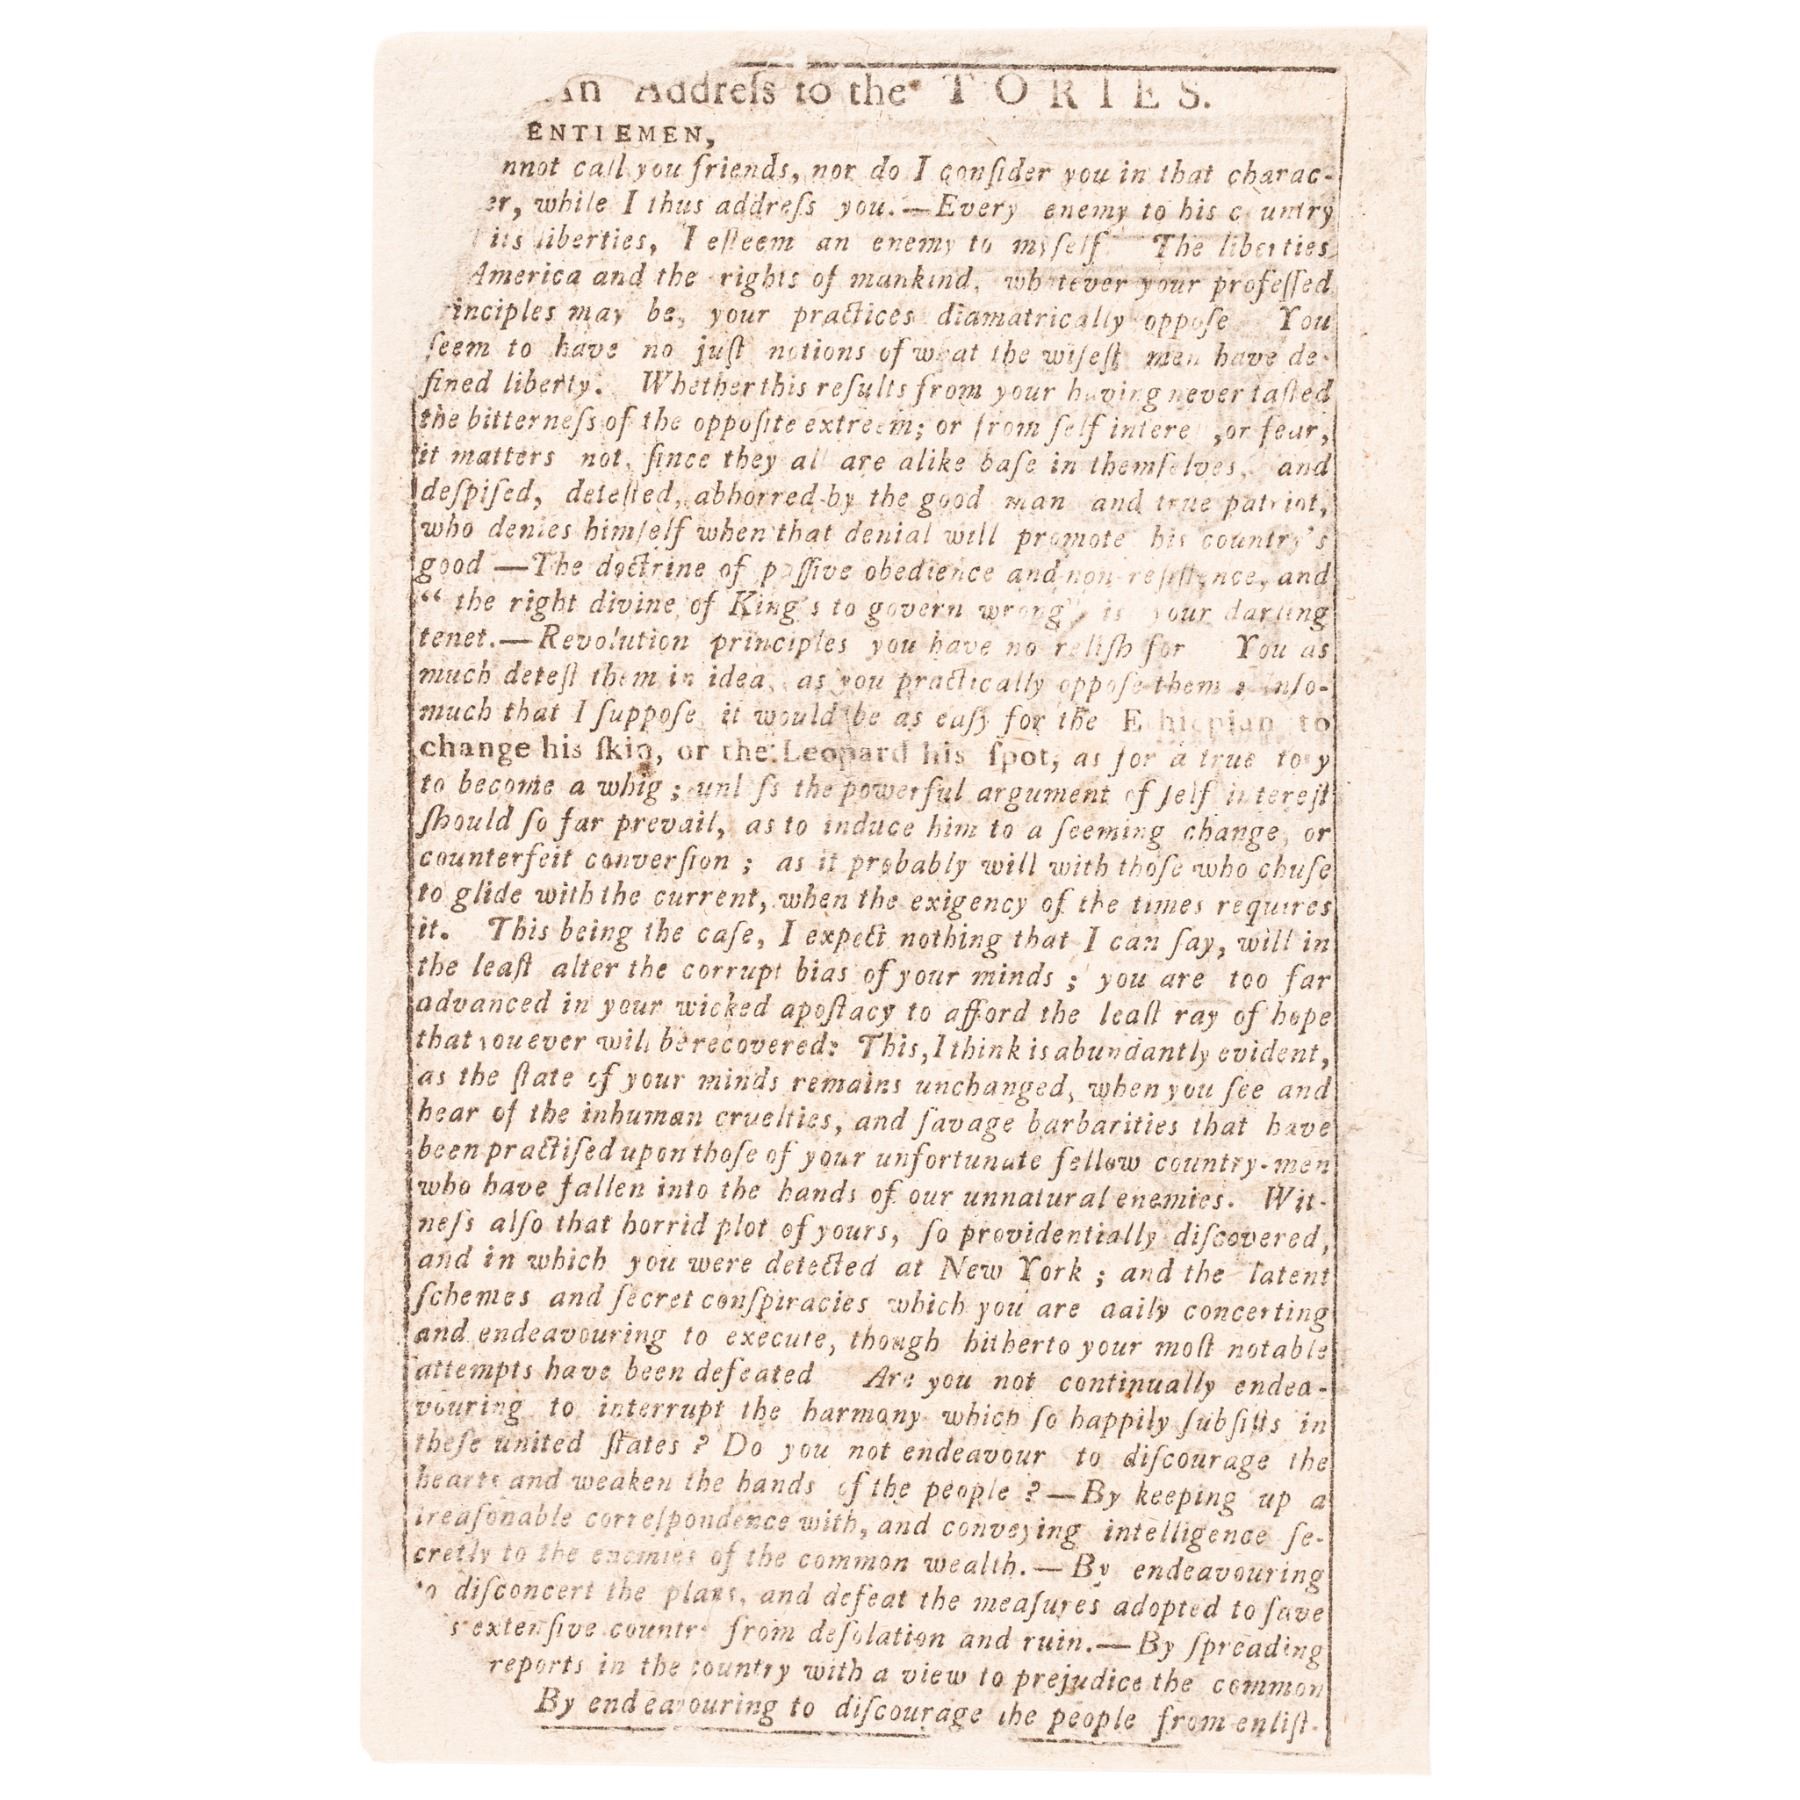 An Addreſs to the TORIES.
ENTLEMEN,
nnot call you friends, nor do I conſider you in that charac-
er, while I thus addreſs you.—Every enemy to his c untry
its liberties, I eſteem an enemy to myſelf The liberties
America and the rights of mankind, whatever your profeſſed
rinciples may be, your practices diamatrically oppoſe You
ſeem to have no juſt notions of what the wiſeſt men have de-
fined liberty. Whether this reſults from your having never taſted
the bitterneſs of the oppoſite extreem; or from ſelf intere ,or fear,
it matters not, ſince they all are alike baſe in themſelves, and
deſpiſed, deteſted, abhorred by the good man and true patriot,
who denies himſelf when that denial will promote his country's
good —The doctrine of paſſive obedience and non-reſiſtence, and
“ the right divine of King's to govern wrong” is your darling
tenet.—Revolution principles you have no reliſh for You as
much deteſt them in idea, as you practically oppoſe them ; inſo-
much that I ſuppoſe it would be as eaſy for the Ethiopian to
change his ſkin, or the Leopard his ſpot, as for a true tory
to become a whig ; unl ſs the powerful argument of ſelf intereſt
ſhould ſo far prevail, as to induce him to a ſeeming change, or
counterfeit converſion ; as it probably will with thoſe who chuſe
to glide with the current, when the exigency of the times requires
it. This being the caſe, I expect nothing that I can ſay, will in
the leaſt alter the corrupt bias of your minds ; you are too far
advanced in your wicked apoſtacy to afford the leaſt ray of hope
that you ever will be recovered: This, I think is abundantly evident,
as the ſtate of your minds remains unchanged, when you ſee and
hear of the inhuman cruelties, and ſavage barbarities that have
been practiſed upon thoſe of your unfortunate fellow country-men
who have fallen into the hands of our unnatural enemies. Wit-
neſs alſo that horrid plot of yours, ſo providentially diſcovered,
and in which you were detected at New York ; and the latent
ſchemes and ſecret conſpiracies which you are daily concerting
and endeavouring to execute, though hitherto your moſt notable
attempts have been defeated Are you not continually endea-
vouring to interrupt the harmony which ſo happily ſubſiſts in
theſe united ſtates ? Do you not endeavour to diſcourage the
hearts and weaken the hands of the people ?—By keeping up a
treaſonable correſpondence with, and conveying intelligence ſe-
cretly to the enemies of the common wealth.—By endeavouring
to diſconcert the plans, and defeat the meaſures adopted to ſave
s extenſive country from deſolation and ruin.—By ſpreading
reports in the country with a view to prejudice the common
By endeavouring to diſcourage the people from enliſt-